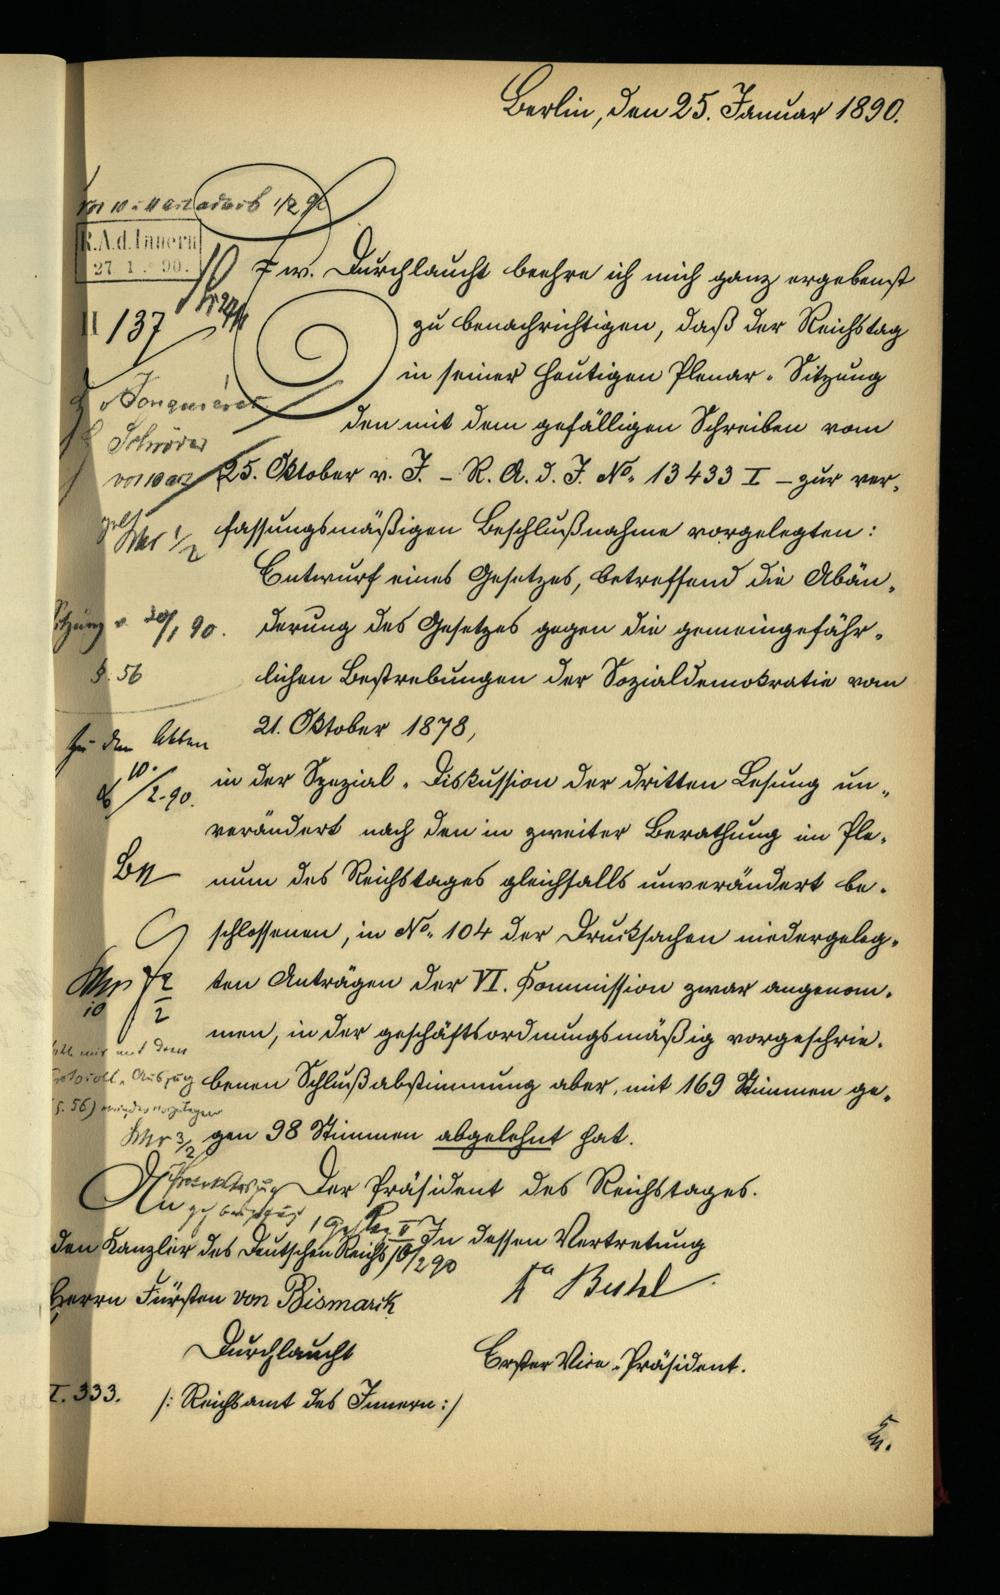 Berlin, den 25. Januar 1890.
R.A.d.Innern
27 1. 90.
II 137
Ew. Durchlaucht beehre ich mich ganz ergebenst
zu benachrichtigen, daß der Reichstag
in seiner heutigen Plenar-Sitzung
den mit dem gefälligen Schreiben vom
25. Oktober v. J. – R. A. d. J. No. 13433 I – zur ver-
fassungsmäßigen Beschlußnahme vorgelegten:
Entwurf eines Gesetzes, betreffend die Abän-
derung des Gesetzes gegen die gemeingefähr-
lichen Bestrebungen der Sozialdemokratie vom
21. Oktober 1878,
in der Spezial-Diskussion der dritten Lesung un-
verändert nach den in zweiter Berathung im Ple-
num des Reichstages gleichfalls unverändert be-
schlossenen, in No. 104 der Drucksachen niedergeleg-
ten Anträgen der VI. Kommission zwar angenom-
men, in der geschäftsordnungsmäßig vorgeschrie-
benen Schlußabstimmung aber, mit 169 Stimmen ge-
gen 98 Stimmen abgelehnt hat.
Der Präsident des Reichstages.
In dessen Vertretung
Buhl
Erster Vice-Präsident.
An
den Kanzler des Deutschen Reichs
Herrn Fürsten von Bismarck
Durchlaucht
/: Reichsamt des Innern :/
I. 333.
§. 56
Zu den Akten